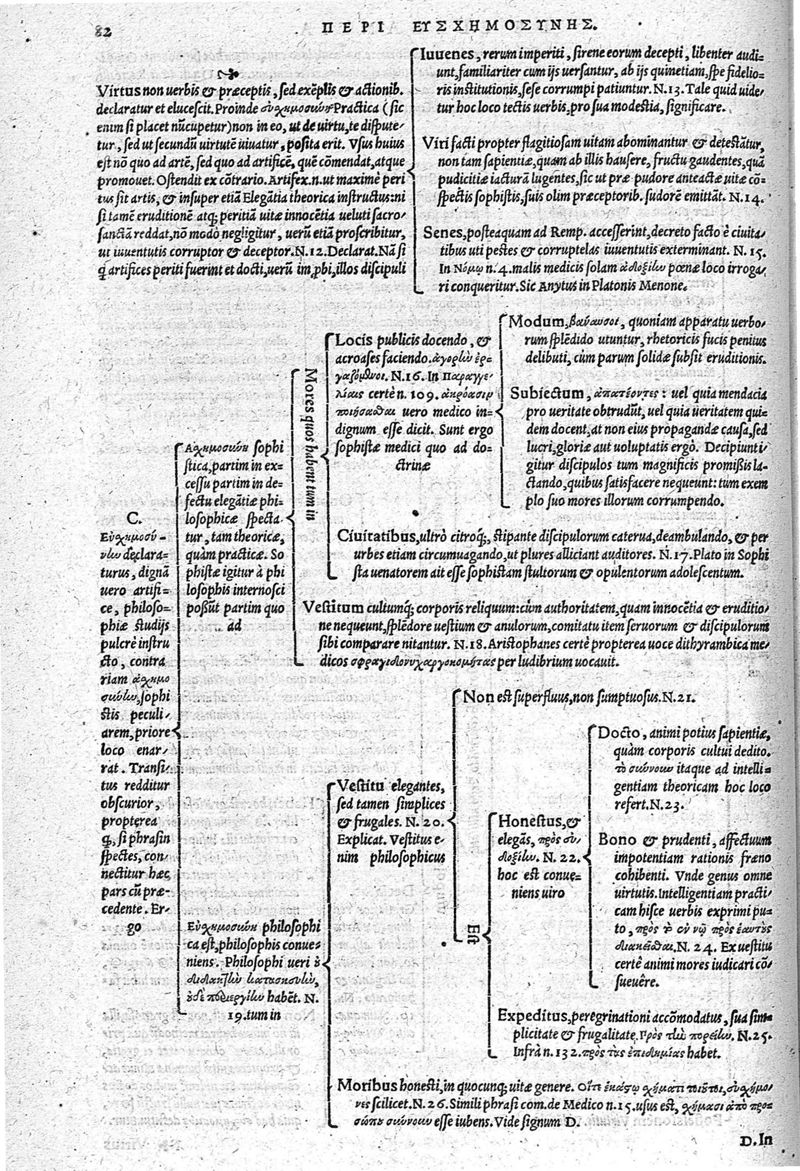 82
ΠΕΡΙ ΕΥΣΧΗΜΟΣΥΝΗΣ.
Virtus non uerbis & præceptis, sed exẽplis & actionib.
declaratur et elucescit. Proinde Practica (sic
enim si placet nũcupetur) non in eo, ut de uirtu, te dispute-
tur, sed ut secundũ uirtutẽ uiuatur, posita erit. Vsus huius
est nõ quo ad artẽ, sed quo ad artificẽ, quẽ cõmendat, atque
promouet. Ostendit ex cõtrario. Artifex.n. ut maximè peri
tus sit artis, & insuper etiã Elegãtia theorica instructus: ni
si tamẽ eruditionẽ atq; peritiã uitæ innocẽtia ueluti sacro-
sanctã reddat, nõ modò negligitur, uerũ etiã proscribitur,
ut iuuentutis corruptor & deceptor. N. 12. Declarat. Nã si
q artifices periti fuerint et docti, uerũ im,pbi, illos discipuli
Iuuenes, rerum imperiti, sirene eorum decepti, libenter audi-
unt, familiariter cum ijs uersantur, ab ijs quinetiam, spe fidelio-
ris institutionis, sese corrumpi patiuntur. N. 13. Tale quid uide-
tur hoc loco tectis uerbis, pro sua modestia, significare.
Viri facti propter flagitiosam uitam abominantur & detestãtur,
non tam sapientiæ, quam ab illis hausere, fructu gaudentes, quã
pudicitiæ iacturam lugentes, sic ut præ pudore anteactæ uitæ cõ-
spectis sophistis, suis olim præceptorib. sudorẽ emittãt. N. 14.
Senes, posteaquam ad Remp. accesserint, decreto facto è ciuita-
tibus uti pestes & corruptelas iuuentutis exterminant. N. 15.
In Νόμῳ n. 4. malis medicis solam ἀδοξίλω pœnæ loco irroga-
ri conqueritur. Sic Anytus in Platonis Menone.
C.
Εὐσχημοσύ-
νlω declara-
turus, dignã
uero artifi-
ce, philoso-
phiæ studijs
pulcrè instru
cto, contra
riam ἀσχημο
σύνlω, sophi
stis peculi-
arem, priore
loco enar-
rat. Transi-
tus redditur
obscurior,
propterea
q, si phrasin
spectes, con-
nectitur hæc
pars cũ præ-
cedente. Er-
go
Ασχημοσύνη sophi
stica, partim in ex-
cessu partim in de-
fectu elegãtiæ phi-
losophicæ specta-
tur, tam theoricæ,
quàm practicæ. So
phistæ igitur à phi
losophis internosci
possũt partim quo
ad
Mores quos habent tum in
Locis publicis docendo, &
acroases faciendo. ἀγορlω ἐρ-
γαζόμϐνοι. N. 16. In Παραγγε-
λίαις certè n. 109. ἀκρόασιμ
ποιήσασθαι uero medico in-
dignum esse dicit. Sunt ergo
sophistæ medici quo ad do-
ctrinæ
Modum, βαύαυσοι, quoniam apparatu uerbo-
rum splẽdido utuntur, rhetoricis fucis penitus
delibuti, cùm parum solidæ subsit eruditionis.
Subiectum, ἀπατέοντες: uel quia mendacia
pro ueritate obtrudũt, uel quia ueritatem qui-
dem docent, at non eius propagandæ causa, sed
lucri, gloriæ aut uoluptatis ergò. Decipiunt i-
gitur discipulos tum magnificis promißis la-
ctando, quibus satisfacere nequeunt: tum exem
plo suo mores illorum corrumpendo.
Ciuitatibus, ultrò citroq;, stipante discipulorum caterua, deambulando, & per
urbes etiam circumuagando, ut plures alliciant auditores. N. 17. Plato in Sophi
sta uenatorem ait esse sophistam stultorum & opulentorum adolescentum.
Vestitum cultumq; corporis reliquum: cùm authoritatem, quam innocẽtia & eruditio-
ne nequeunt, splẽdore uestium & anulorum, comitatu item seruorum & discipulorum
sibi comparare nitantur. N. 18. Aristophanes certè propterea uoce dithyrambica me-
dicos σφραγιδονυχαργοκομήτας per ludibrium uocauit.
Εὐσχημοσύνη philosophi
ca est, philosophis conue-
niens. Philosophi ueri
habẽt. N.
19. tum in
Vestitu elegantes,
sed tamen simplices
& frugales. N. 20.
Explicat. Vestitus e-
nim philosophicus
Non est superfluus, non sumptuosus. N. 21.
Est
Honestus, &
elegãs, πρὸς εὐ-
δοξίlω. N. 22.
hoc est conue-
niens uiro
Docto, animi potius sapientiæ,
quàm corporis cultui dedito.
τὸ σύννουν itaque ad intelli-
gentiam theoricam hoc loco
refert. N. 23.
Bono & prudenti, affectuum
impotentiam rationis fræno
cohibenti. Vnde genus omne
uirtutis. Intelligentiam practi-
cam hisce uerbis exprimi pu-
to, πρὸς τὸ ἐν νῷ πρὸς ἑαυτοὺς
N. 24. Ex uestitu
certè animi mores iudicari cõ-
sueuêre.
Expeditus, peregrinationi accõmodatus, sua sim-
plicitate & frugalitate, Πρὸς τlω πορείlω. N. 25.
Infrà n. 132. πρὸς τὰς ἐπιδημίας habet.
Moribus honesti, in quocunq; uitæ genere.
scilicet. N. 26. Simili phrasi com. de Medico n. 15. usus est,
esse iubens. Vide signum D.
D. In